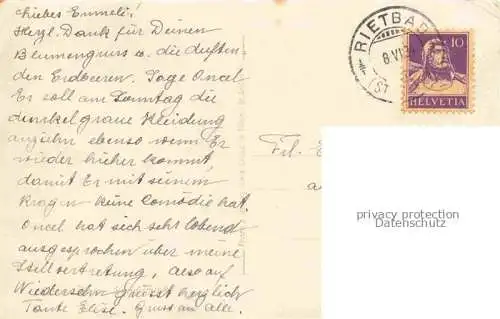 Liebes Emmeli!
Herzl. Dank für Deinen
Blumengruss u. die duften-
den Erdbeeren. Sage Oncel
Er soll am Sonntag die
dunkelgraue Kleidung
anziehn ebenso wenn Er
wieder hieher kommt,
damit Er mit seinem
Kragen keine Comödie hat.
Oncel hat sich sehr lobend
ausgesprochen über meine
Stellvertretung, also auf
Wiedersehn grüsst herzlich
Tante Elise. Gruss an alle.
RIETBAD
8 VI
(ST
10
HELVETIA
Frl.
privacy protection
Datenschutz